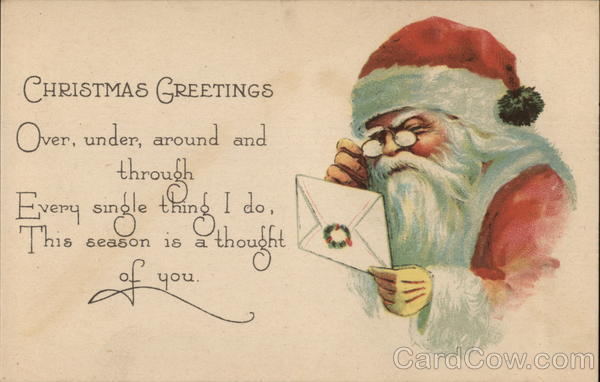 CHRISTMAS GREETINGS
Over, under, around and
through
Every single thing I do,
This season is a thought
of you.
CardCow.com